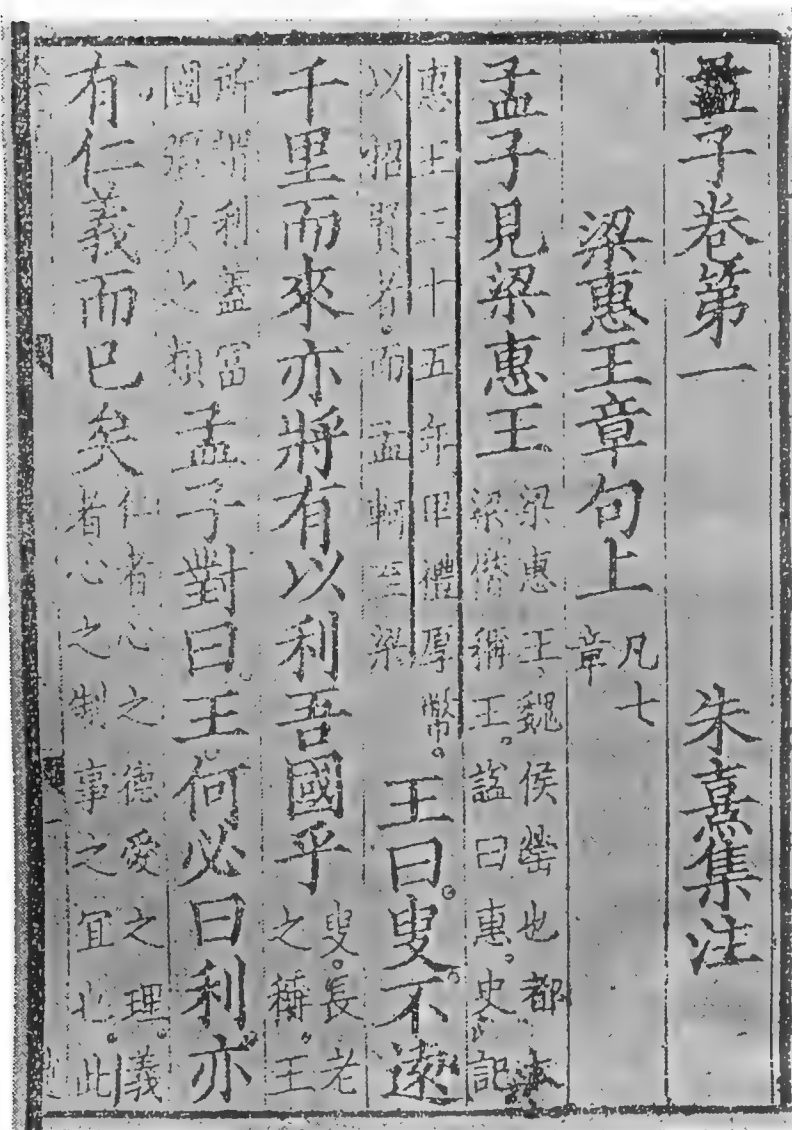 孟子卷第一 朱熹集注
梁惠王章句上 凡七章
孟子見梁惠王 梁惠王魏侯罃也都大梁僭稱王謚曰惠史記
惠王三十五年卑禮厚幣以招賢者而孟軻至梁 王曰叟不遠
千里而來亦將有以利吾國乎 叟長老之稱王
所謂利蓋富國彊兵之類 孟子對曰王何必曰利亦
有仁義而已矣 仁者心之德愛之理義者心之制事之宜也此